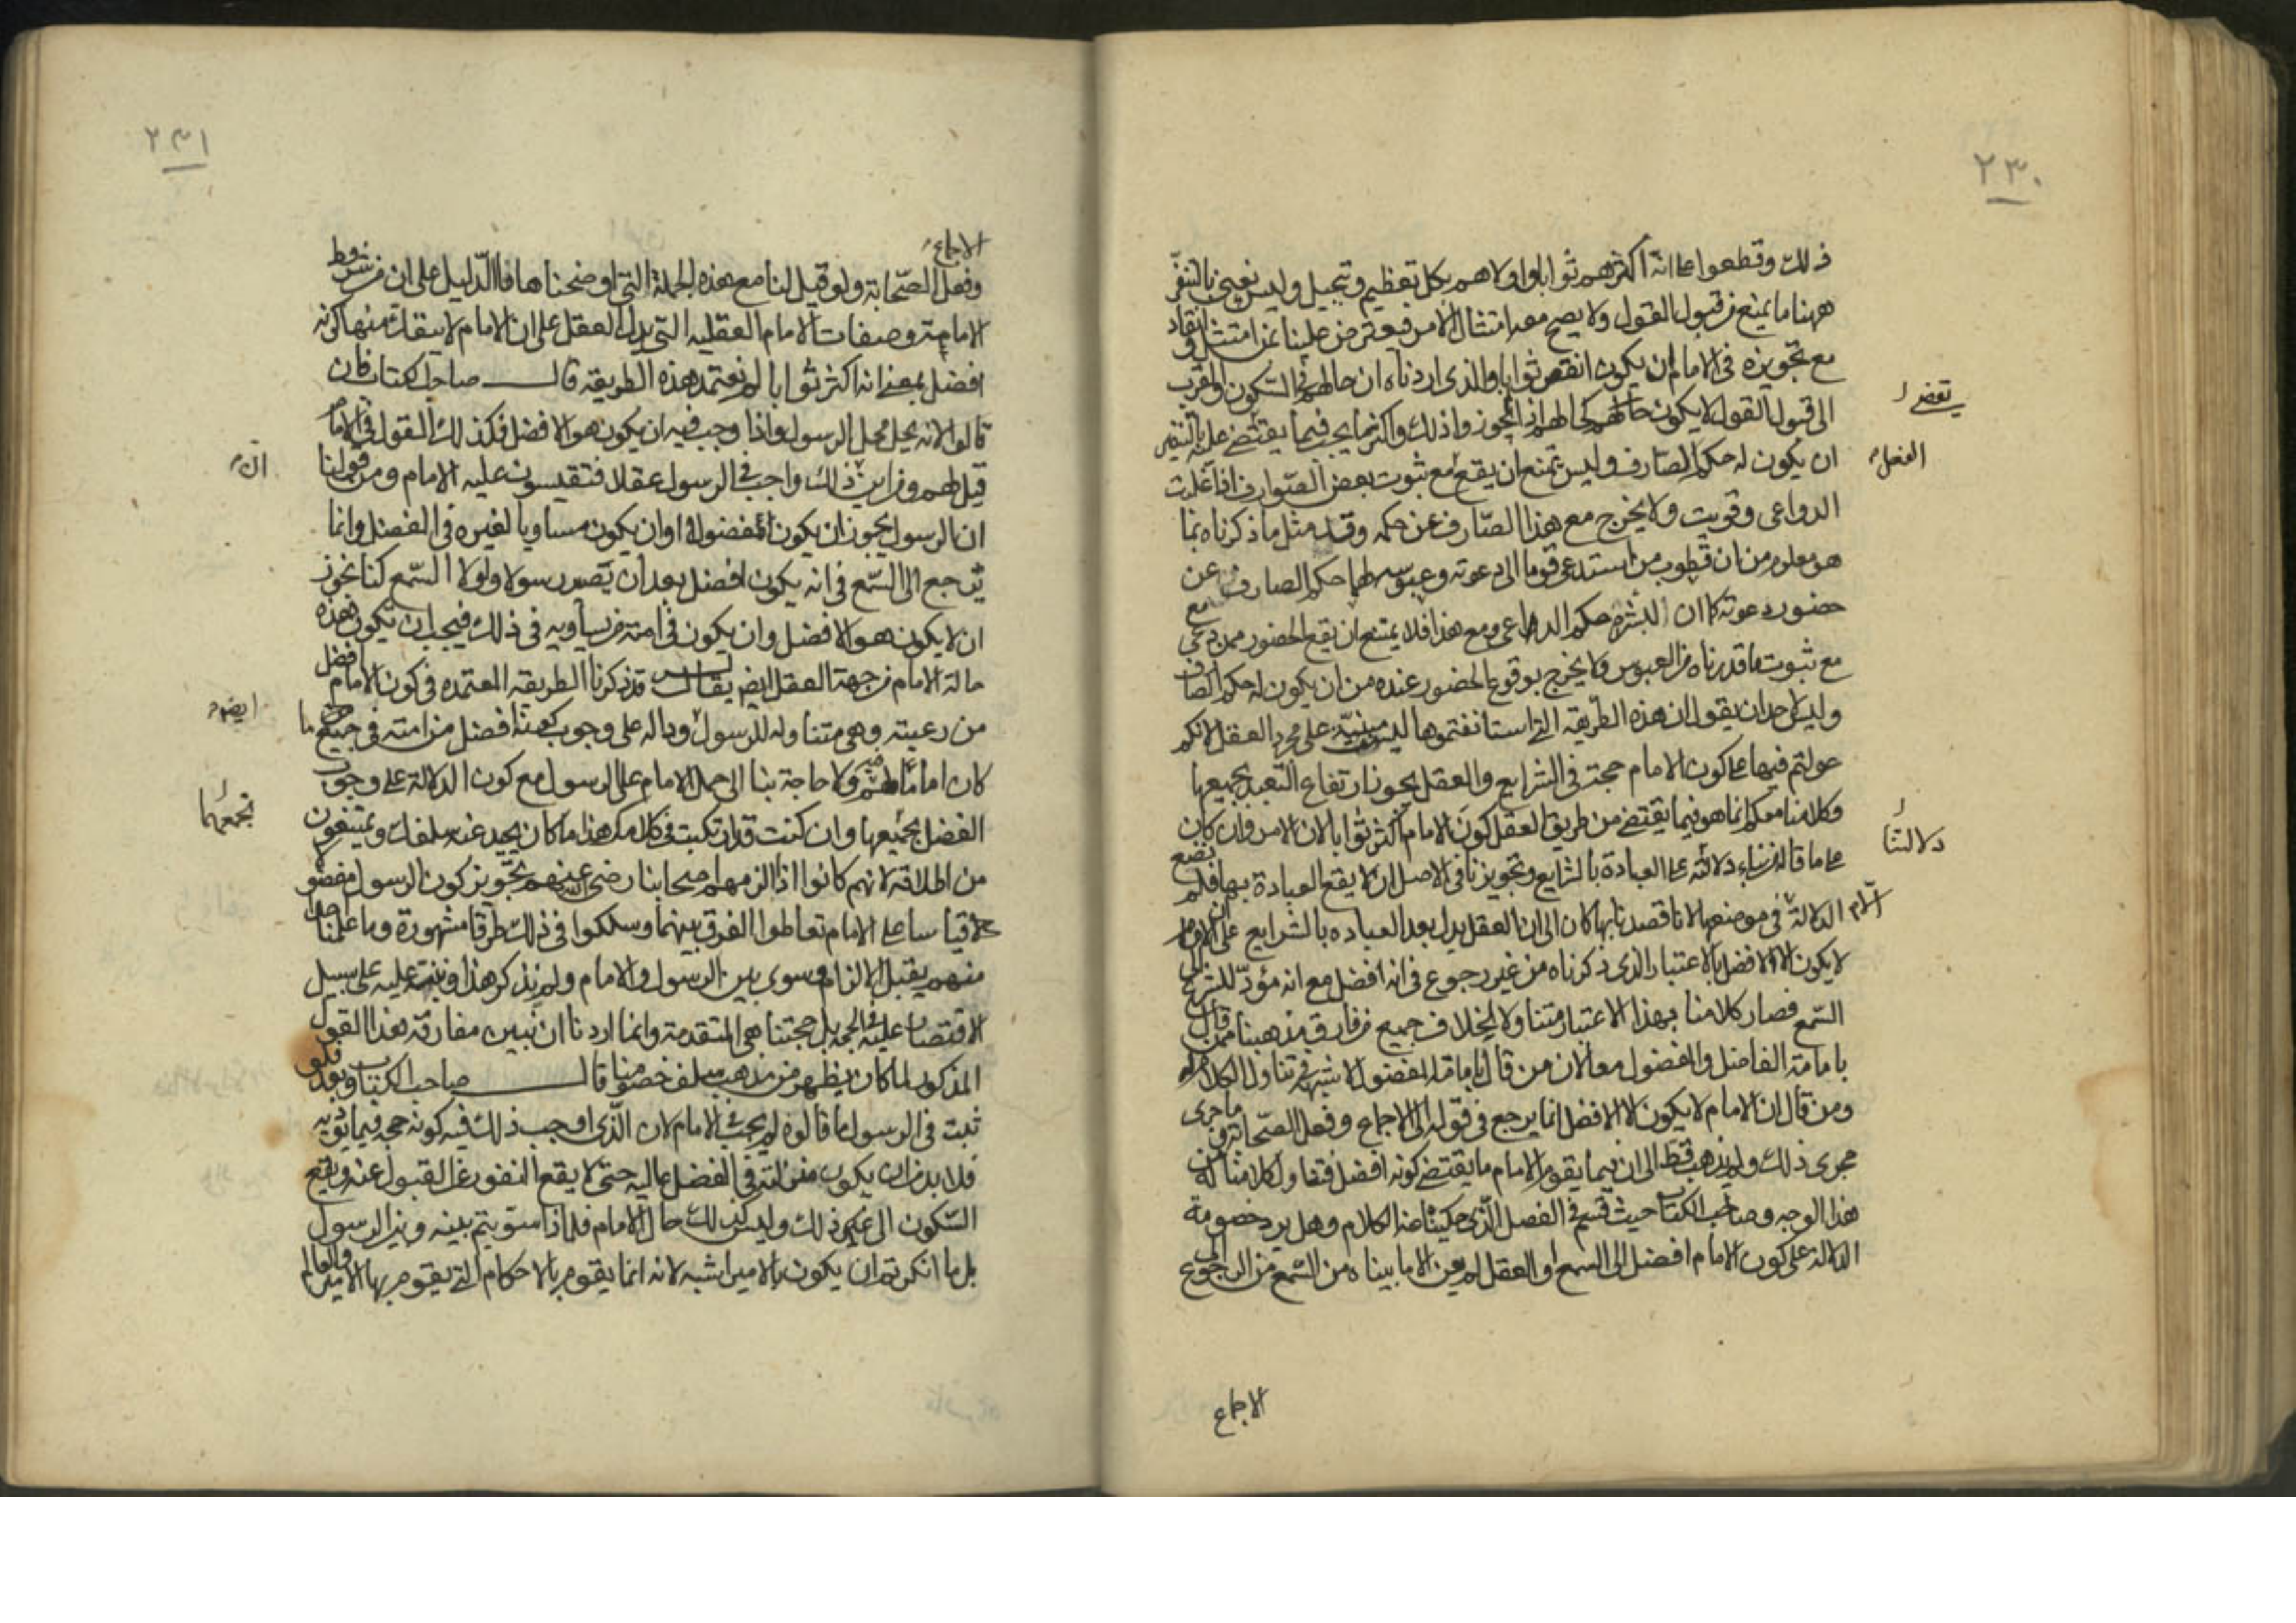 ٢٣٠
ذلك وقطعوا على انه اكثرهم ثوابا واولاهم بكل تعظيم وتبجيل وليس نعني بالتنفير
ههنا ما يمنع من قبول القول ولا يصح معه امتثال الامر فيعترض علينا بمن امتثل وانقاد
مع تجويزه في الامام ان يكون انقص ثوابا والذي اردناه ان حالهم في السكون والقرب
الى قبول القول لا يكون كحالهم اذا لم يجوزوا ذلك واكثر ما يجب فيما يقتضى عليه التنفير
ان يكون له حكم الصارف وليس يمتنع ان يقع مع ثبوت بعض الصوارف اذا غلبت
الدواعي وقويت ولا يخرج مع هذا الصارف عن حكمه وقد مثل ما ذكرناه بما
هو معلوم من ان قطوب من استدعى قوما الى دعوته وعبوسه لهما حكم الصارف عن
حضور دعوته كما ان البشر له حكم الداعي ومع هذا فلا يمتنع ان يقع الحضور ممن دعي
مع ثبوت ما قدرناه من العبوس ولا يخرج بوقوع الحضور عنده من ان يكون له حكم الصارف
وليس لاحد ان يقول ان هذه الطريقة التي استانفتموها ليست مبنية على مجرد العقل لانكم
عولتم فيها على كون الامام حجة في الشرايع والعقل يجوز ارتفاع التعبد بجميعها
وكلامنا معكم انما هو فيما يقتضي من طريق العقل كون الامام اكثر ثوابا لان الامر وان كان
على ما قاله من بناء دلالته على العبادة بالشرايع وتجويزنا في الاصل ان لا يقع العبادة بها فلم نضع
الدلالة في موضعها لانا قصدنا بها كان الى ان العقل يدل بعد العباده بالشرايع على ان الامام
لا يكون الا الافضل بالاعتبار الذي ذكرناه من غير رجوع في انه افضل مع انه مؤد للشرع الى
السمع فصار كلامنا بهذا الاعتبار متناولا لخلاف جميع من فارق مذهبنا ممن قال
بامامة الفاضل والمفضول معا لان من قال بامامة المفضول لا شبهة في تناول الكلام له
ومن قال ان الامام لا يكون الا الافضل انما يرجع في قوله الى الاجماع وفعل الصحابة وما جرى
مجرى ذلك ولم يذهب قط الى ان فيما يقوم الامام ما يقتضي كونه افضل فتناول كلامنا له من
هذا الوجه وصاحب الكتاب حيث قسم في الفصل الذي حكيناه هذا الكلام وهل يرد خصومه
الدلالة على كون الامام افضل الى السمع او العقل لم يعن الا ما بيناه من السمع من الرجوع الى
الاجماع
يقتضى
الفعل
دلالتنا
٢٣١
الاجماع
وفعل الصحابة ولو قيل لنا مع هذه الجملة التي اوضحناها فما الدليل على ان من شروط
الامامة وصفات الامام العقليه التي يدل العقل على ان الامام لا ينفك منها كونه
افضل بمعنى انه اكثر ثوابا لم نعتمد هذه الطريقه قال صاحب الكتاب فان
قالوا لانه يحل محل الرسول واذا وجب فيه ان يكون هو الافضل فكذلك القول في الامام
قيل لهم ومن اين ذلك واجب في الرسول عقلا فتقيسون عليه الامام ومن قولنا
ان الرسول يجوز ان يكون مفضولا وان يكون مساويا لغيره في الفضل وانما
يرجع الى السمع في انه يكون افضل بعد ان يصير رسولا ولولا السمع كنا نجوز
ان لا يكون هو الافضل وان يكون في امته من يساويه في ذلك فيجب ان يكون هذه
حالة الامام من جهة العقل ايضا يقال له قد ذكرنا الطريقه المعتمده في كون الامام افضل
من رعيته وهي متناوله للرسول ودالة على وجوب كونه افضل من امته في جميع ما
كان اماما لهم فيه ولا حاجة بنا الى حمل الامام على الرسول مع كون الدلالة على وجوب
الفضل بجميعها وان كنت قد ارتكبت في كلامك هذا ما كان يحيد عنه سلفك ويمتنعون
من اطلاقه لانهم كانوا اذا الزمهم اصحابنا رضي الله عنهم تجويز كون الرسول مفضولا
قياسا على الامام تعاطوا الفرق بينهما وسلكوا في ذلك طرقا مشهورة وما علمنا احدا
منهم يقبل الالزام وسوى بين الرسول والامام ولم نذكر هذا ونبنه عليه على سبيل
الاقتصار عليه في الحجة بل حجتنا هي المتقدمة وانما اردنا ان نبين مفارقة هذا القول
المذكور لما كان يظهر من مذهب سلف خصومنا قال صاحب الكتاب وبعد فلو
ثبت في الرسول ما قالوه لم يجب في الامام لان الذي اوجب ذلك فيه كونه حجه فيما يؤديه
فلا بد من ان يكون منزلته في الفضل عاليه حتى لا يقع النفور عن القبول عنه ويقع
السكون الى غير ذلك وليس كذلك حال الامام فلماذا سويتم بينه وبين الرسول
بل ما انكرتم ان يكون بالامير اشبه لانه انما يقوم بالاحكام التي يقوم بها الامير والعامل
ان
ايضا
بجميعها